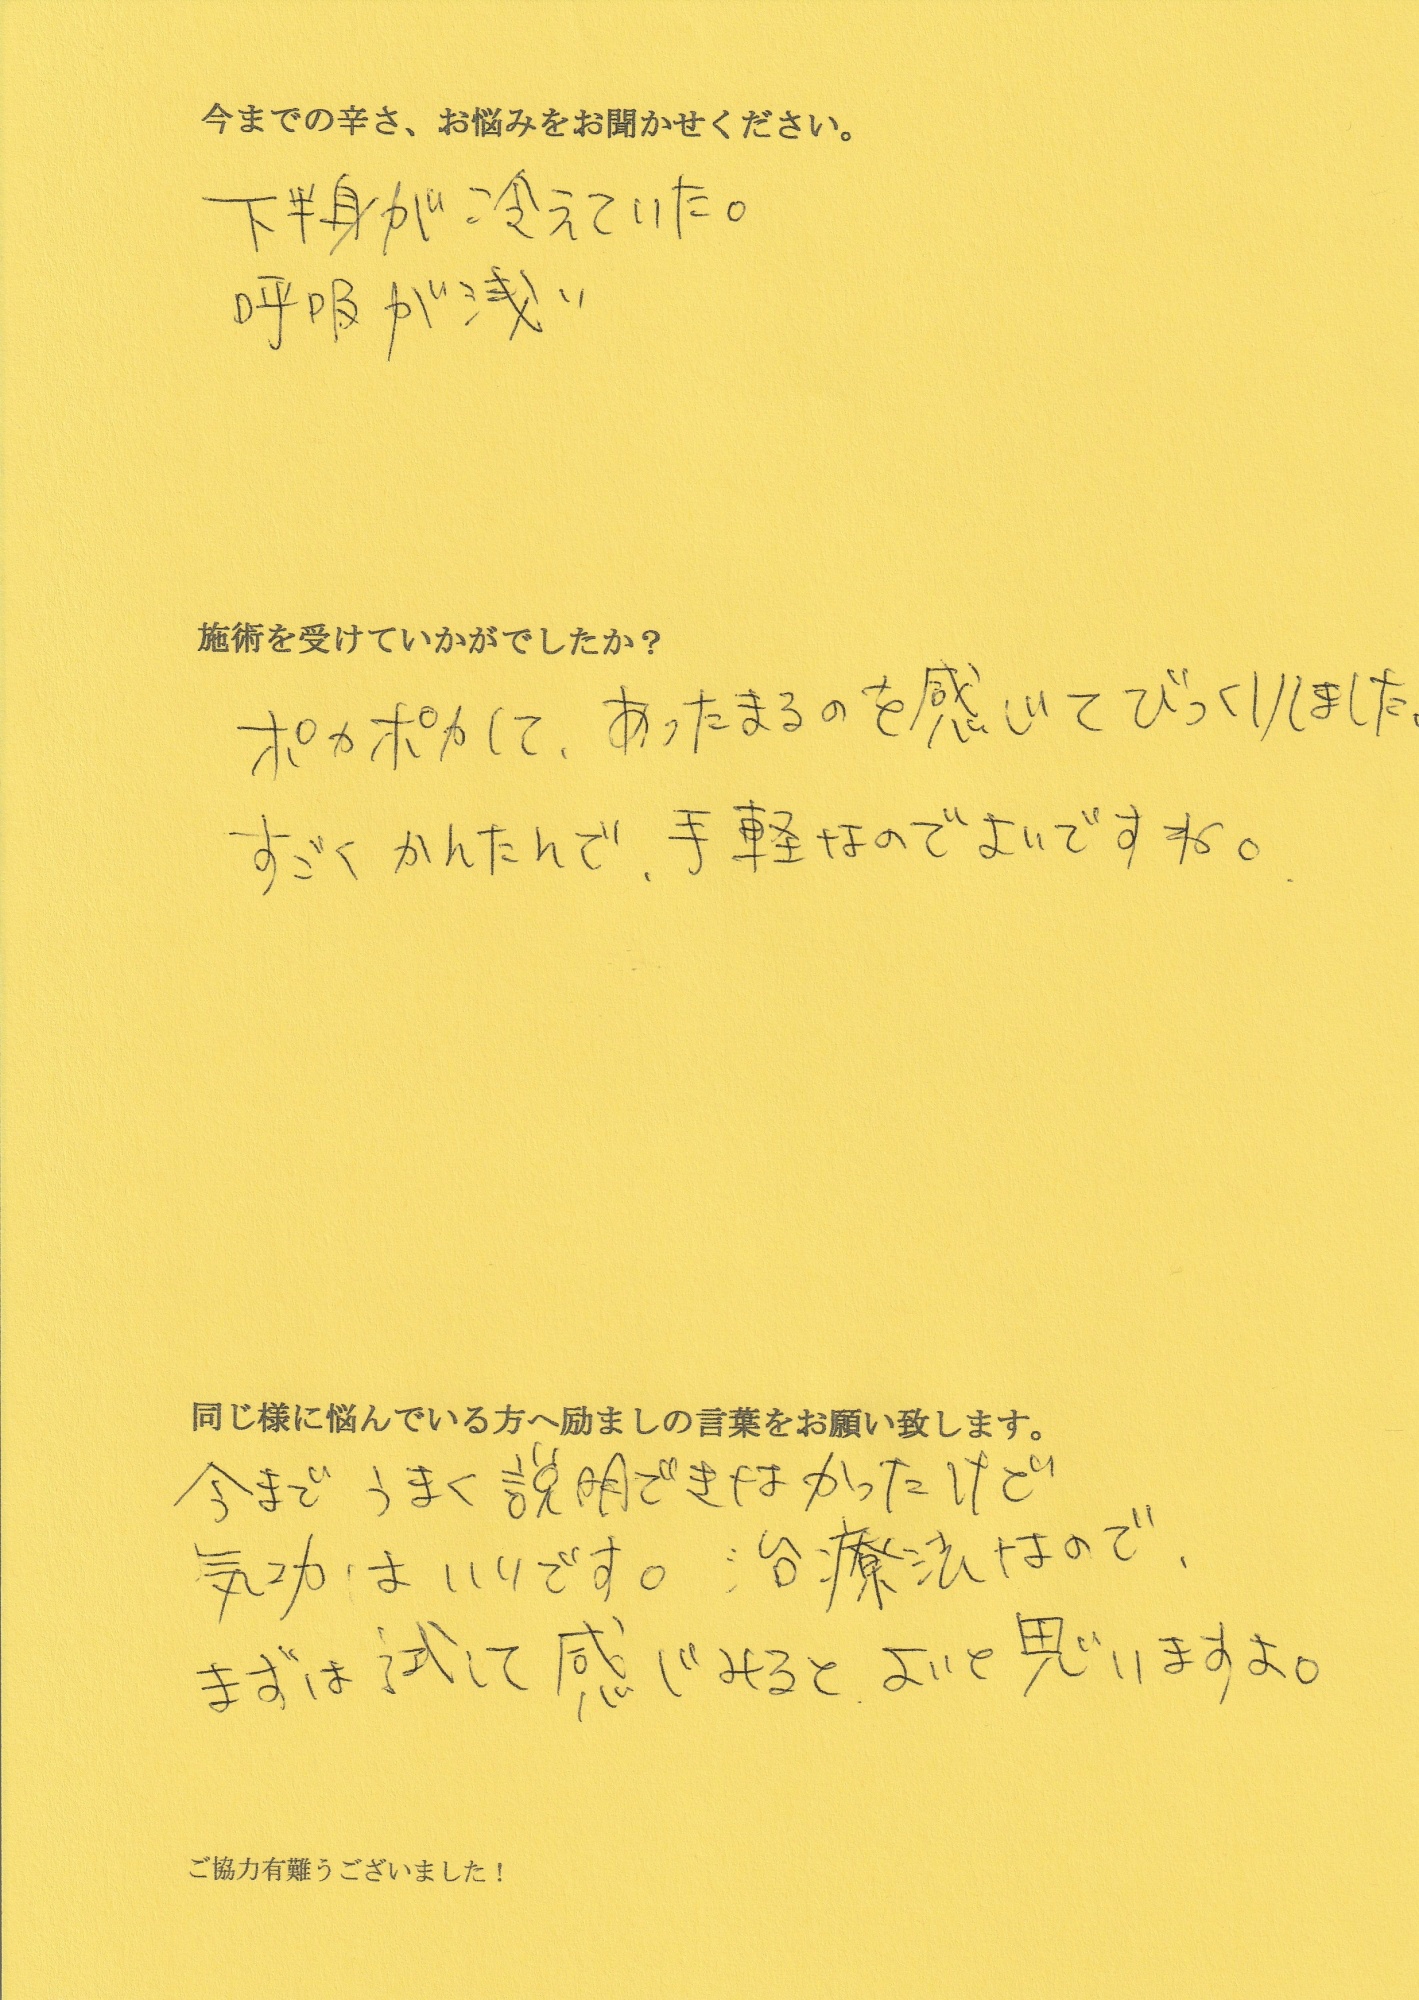 今までの辛さ、お悩みをお聞かせください。
下半身が冷えていた。
呼吸が浅い
施術を受けていかがでしたか?
ポカポカして、あったまるのを感じてびっくりしました。
すごくかんたんで、手軽なのでよいですね。
同じ様に悩んでいる方へ励ましの言葉をお願い致します。
今までうまく説明できなかったけど
気功はいいです。治療法なので、
まずは試して感じみるとよいと思いますよ。
ご協力有難うございました!